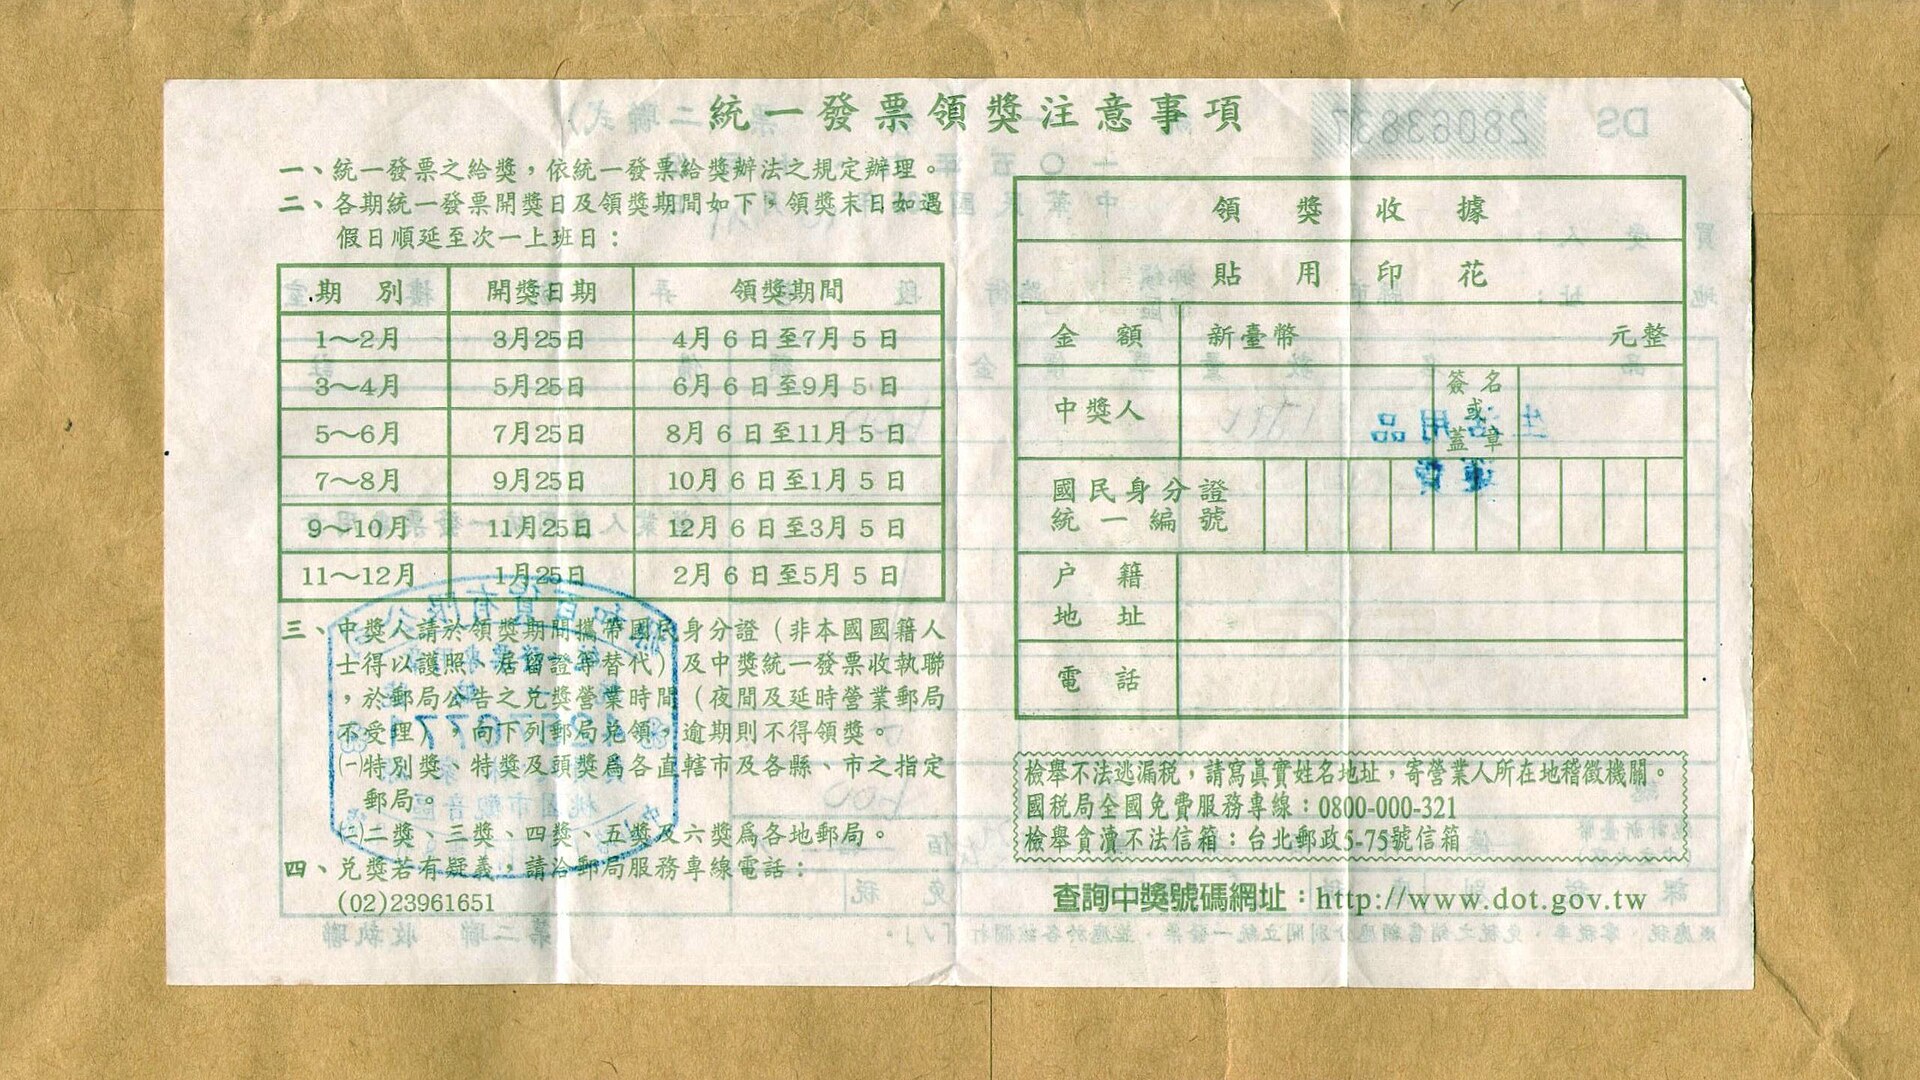 統一發票領獎注意事項
一、統一發票之給獎，依統一發票給獎辦法之規定辦理。
二、各期統一發票開獎日及領獎期間如下，領獎末日如遇
假日順延至次一上班日：
期 別 開獎日期 領獎期間
1～2月 3月25日 4月6日至7月5日
3～4月 5月25日 6月6日至9月5日
5～6月 7月25日 8月6日至11月5日
7～8月 9月25日 10月6日至1月5日
9～10月 11月25日 12月6日至3月5日
11～12月 1月25日 2月6日至5月5日
三、中獎人請於領獎期間攜帶國民身分證（非本國國籍人
士得以護照、居留證等替代）及中獎統一發票收執聯
，於郵局公告之兌獎營業時間（夜間及延時營業郵局
不受理），向下列郵局兌領，逾期則不得領獎。
㈠特別獎、特獎及頭獎爲各直轄市及各縣、市之指定
郵局。
㈡二獎、三獎、四獎、五獎及六獎爲各地郵局。
四、兌獎若有疑義，請洽郵局服務專線電話：
(02)23961651
領獎收據
貼用印花
金額 新臺幣 元整
中獎人 簽名或蓋章
國民身分證
統一編號
戶籍
地址
電話
檢舉不法逃漏稅，請寫眞實姓名地址，寄營業人所在地稽徵機關。
國稅局全國免費服務專線：0800-000-321
檢舉貪瀆不法信箱：台北郵政5-75號信箱
查詢中獎號碼網址：http://www.dot.gov.tw
DS 28063837
生活用品